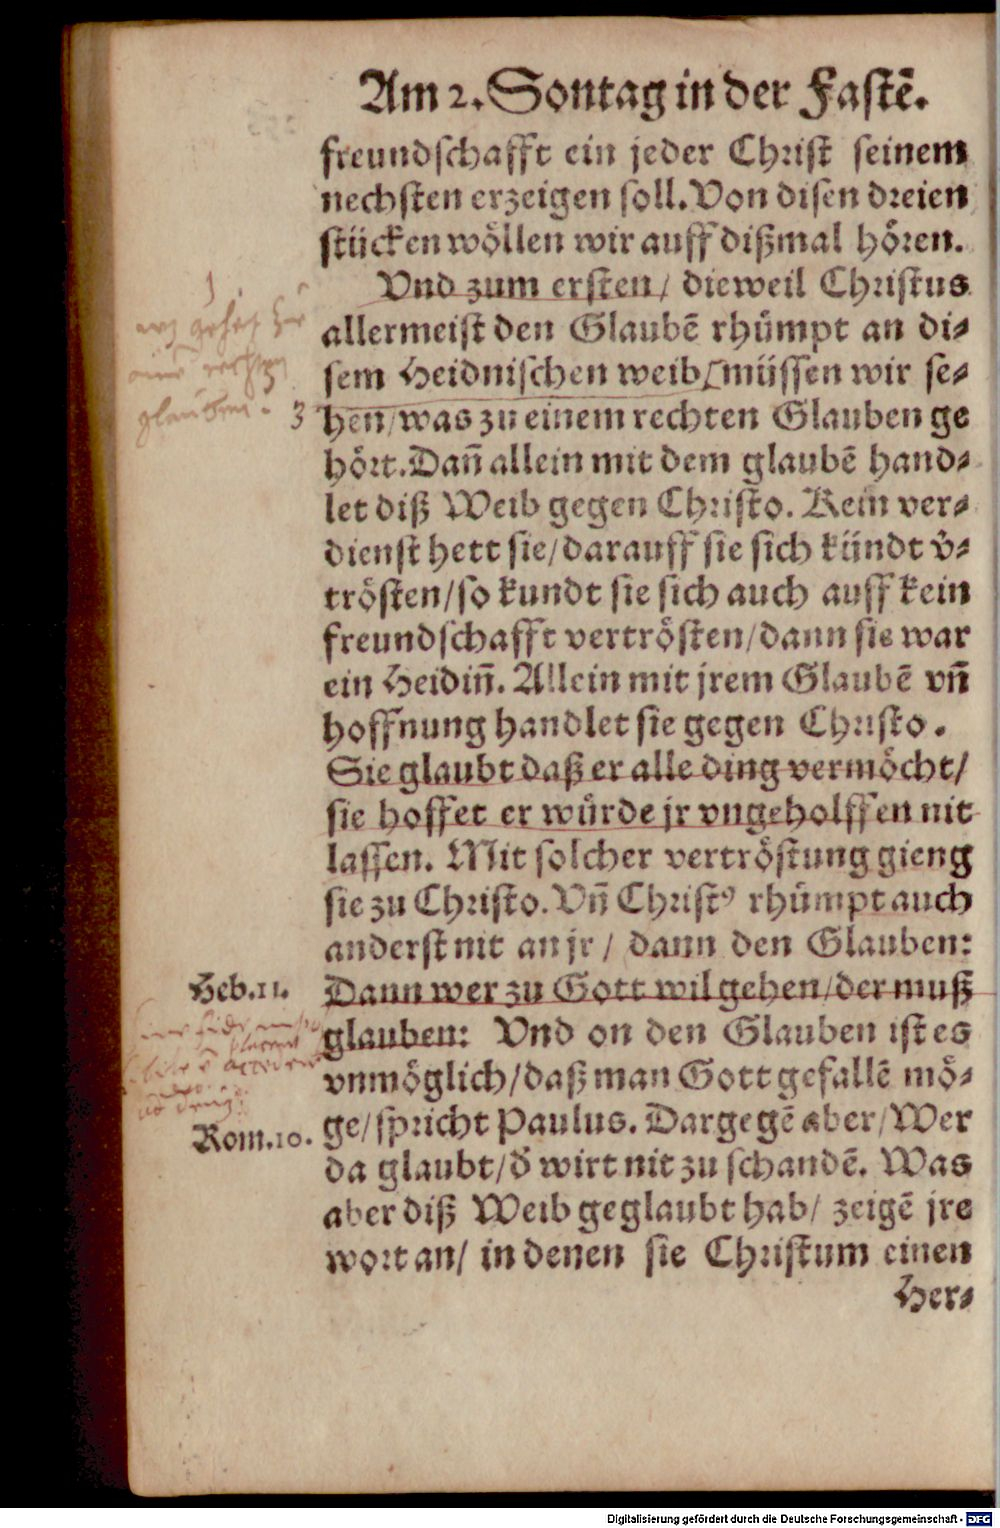 Am 2. Sontag in der Fastē.
freundschafft ein jeder Christ seinem
nechsten erzeigen soll. Von disen dreien
stücken wöllen wir auff dißmal hören.
Vnd zum ersten / dieweil Christus
allermeist den Glaubē rhümpt an di⸗
sem Heidnischen weib / müssen wir se⸗
3 hen / was zu einem rechten Glauben ge
hört. Dañ allein mit dem glaubē hand⸗
let diß Weib gegen Christo. Kein ver⸗
dienst hett sie / darauff sie sich kündt v̄⸗
trösten / so kundt sie sich auch auff kein
freundschafft vertrösten / dann sie war
ein Heidiñ. Allein mit jrem Glaubē vñ
hoffnung handlet sie gegen Christo.
Sie glaubt daß er alle ding vermöcht /
sie hoffet er würde jr vngeholffen nit
lassen. Mit solcher vertröstung gieng
sie zu Christo. Vñ Christ⁹ rhümpt auch
anderst nit an jr / dann den Glauben:
Heb. 11. Dann wer zu Gott wil gehen / der muß
glauben: Vnd on den Glauben ist es
vnmöglich / daß man Gott gefallē mö⸗
ge / spricht Paulus. Dargegē aber / Wer
Rom. 10. da glaubt / d̄ wirt nit zu schandē. Was
aber diß Weib geglaubt hab / zeigē jre
wort an / in denen sie Christum einen
Her⸗
glauben.
Digitalisierung gefördert durch die Deutsche Forschungsgemeinschaft - DFG